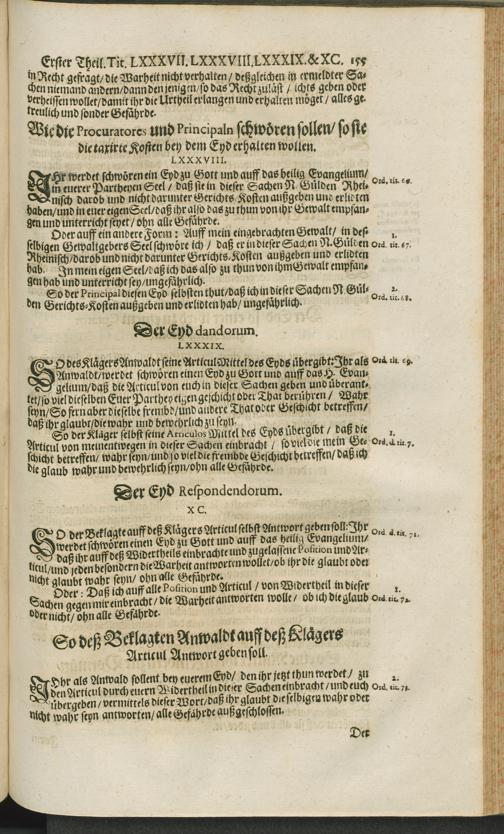 Erster Theil. Tit. LXXXVII. LXXXVIII. LXXXIX. & XC. 155
in Recht gefragt/ die Warheit nicht verhalten/ deßgleichen in ermeldter Sa-
chen niemand andern/ dann den jenigen/ so das Recht zuläst/ ichts geben oder
verheissen wollet/ damit ihr die Urtheil erlangen und erhalten möget/ alles ge-
treulich und sonder Gefährde.
Wie die Procuratores und Principaln schwören sollen/ so sie
die taxirte Kosten bey dem Eyd erhalten wollen.
LXXXVIII.
IHr werdet schwören ein Eyd zu Gott und auff das heilig Evangelium/
in euerer Partheyen Seel/ daß sie in dieser Sachen N. Gülden Rhei- Ord. tit. 60.
nisch darob und nicht darunter Gerichts-Kosten außgeben und erlidten
haben/ und in euer eigen Seel/ daß ihr also das zu thun von ihr Gewalt empfan-
gen und unterricht seyet/ ohn alle Gefährde.
Oder auff ein andere Form: Auff mein eingebrachten Gewalt/ in des- 1.
selbigen Gewaltgebers Seel schwöre ich/ daß er in dieser Sachen N. Gülden Ord. tit. 67.
Rheinisch/ darob und nicht darunter Gerichts-Kosten außgeben und erlidten
hab. In mein eigen Seel/ daß ich das also zu thun von ihm Gewalt empfan-
gen hab und unterricht sey/ ungefährlich.
So der Principal diesen Eyd selbsten thut/ daß ich in dieser Sachen N. Gül- 2.
den Gerichts-Kosten außgeben und erlidten hab/ ungefährlich. Ord. tit. 68.
Der Eyd dandorum.
LXXXIX.
SO des Klägers Anwaldt seine Articul Mittel des Eyds übergibt: Ihr als Ord. tit. 69.
Anwaldt/ werdet schwören einen Eyd zu Gott und auff das H. Evan-
gelium/ daß die Articul von euch in dieser Sachen geben und überant-
tet/ so viel dieselben Euer Parthey eigen geschicht oder That berühren/ Wahr
seyn/ So fern aber dieselbe frembd/ und andere That oder Geschicht betreffen/
daß ihr glaubt/ die wahr und bewehrlich zu seyn.
So der Kläger selbst seine Articulos Mittel des Eyds übergibt/ daß die 1.
Articul von meinentwegen in dieser Sachen einbracht/ so viel die mein Ge- Ord. d. tit. 7.
schicht betreffen/ wahr seyn/ und so viel die frembde Geschicht betreffen/ daß ich
die glaub wahr und bewehrlich seyn/ ohn alle Gefährde.
Der Eyd Respondendorum.
XC.
SO der Beklagte auff deß Klägers Articul selbst Antwort geben soll: Ihr Ord. d. tit. 71.
werdet schwören einen Eyd zu Gott und auff das heilig Evangelium/
daß ihr auff deß Widertheils einbrachte und zugelassene Position und Ar-
ticul/ und jeden besondern die Warheit antworten wollet/ ob ihr die glaubt oder
nicht glaubt wahr seyn/ ohn alle Gefährde.
Oder: Daß ich auff alle Position und Articul/ von Widertheil in dieser 1.
Sachen gegen mir einbracht/ die Warheit antworten wolle/ ob ich die glaub Ord. tit. 72.
oder nicht/ ohn alle Gefährde.
So deß Beklagten Anwaldt auff deß Klägers
Articul Antwort geben soll.
IHr als Anwald sollent bey euerem Eyd/ den ihr jetzt thun werdet/ zu 2.
den Articul durch euern Widertheil in dieser Sachen einbracht/ und euch Ord. tit. 73.
übergeben/ vermittels dieser Wort/ daß ihr glaubt die selbigen wahr oder
nicht wahr seyn antworten/ alle Gefährde außgeschlossen.
Der